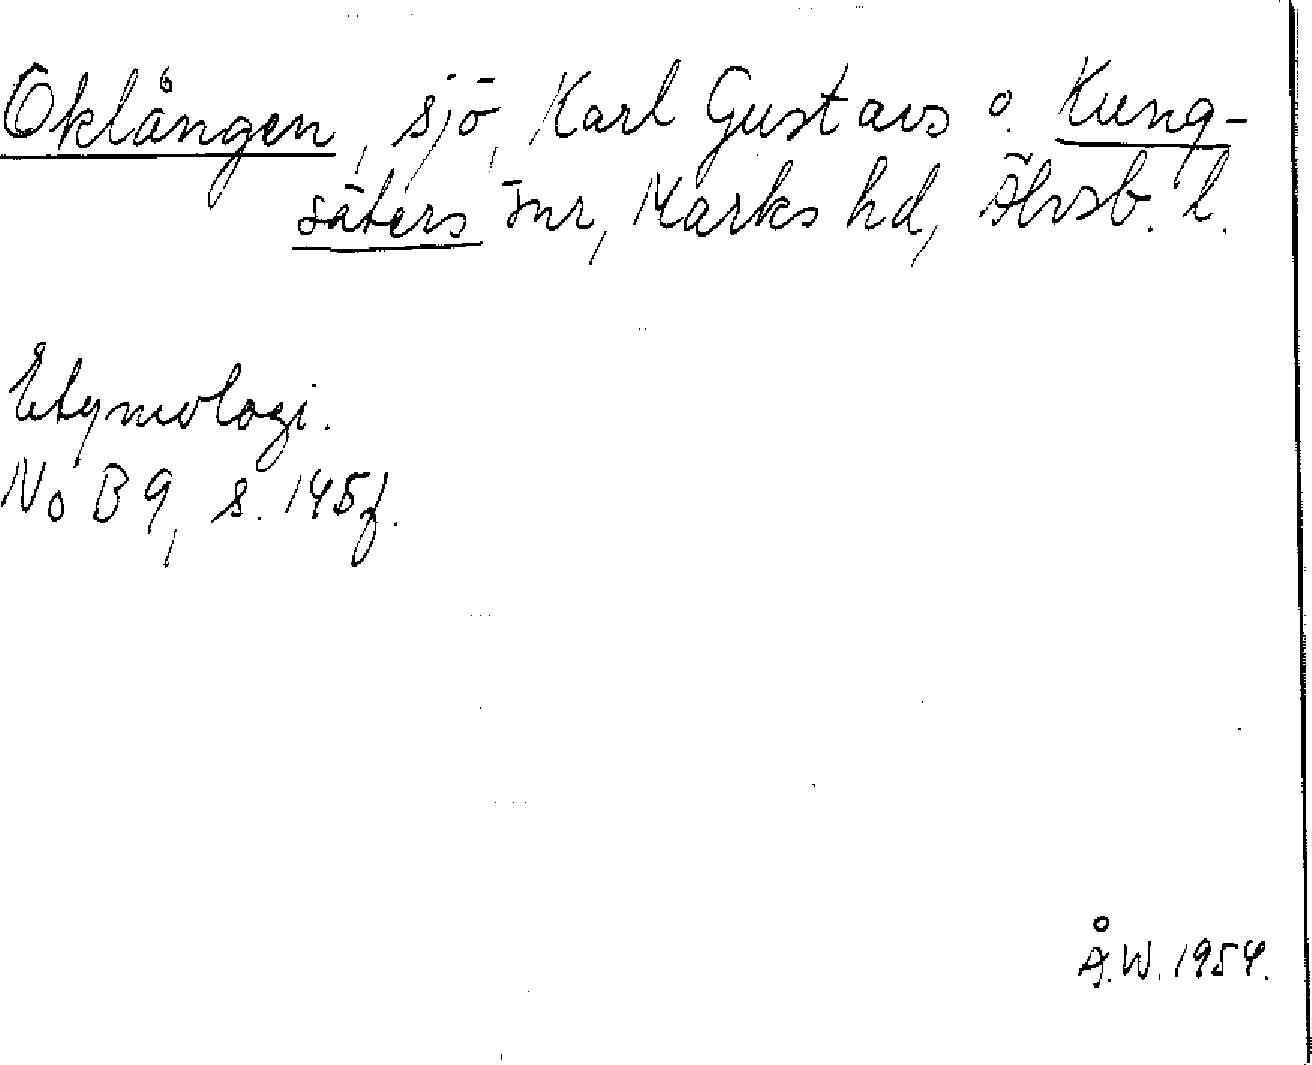 Oklången, sjö, Karl Gustavs o. Kung-
säters snr, Marks hd, Älvsb. l.
Etymologi.
NoB 9, s. 145 f.
Å.W. 1954.